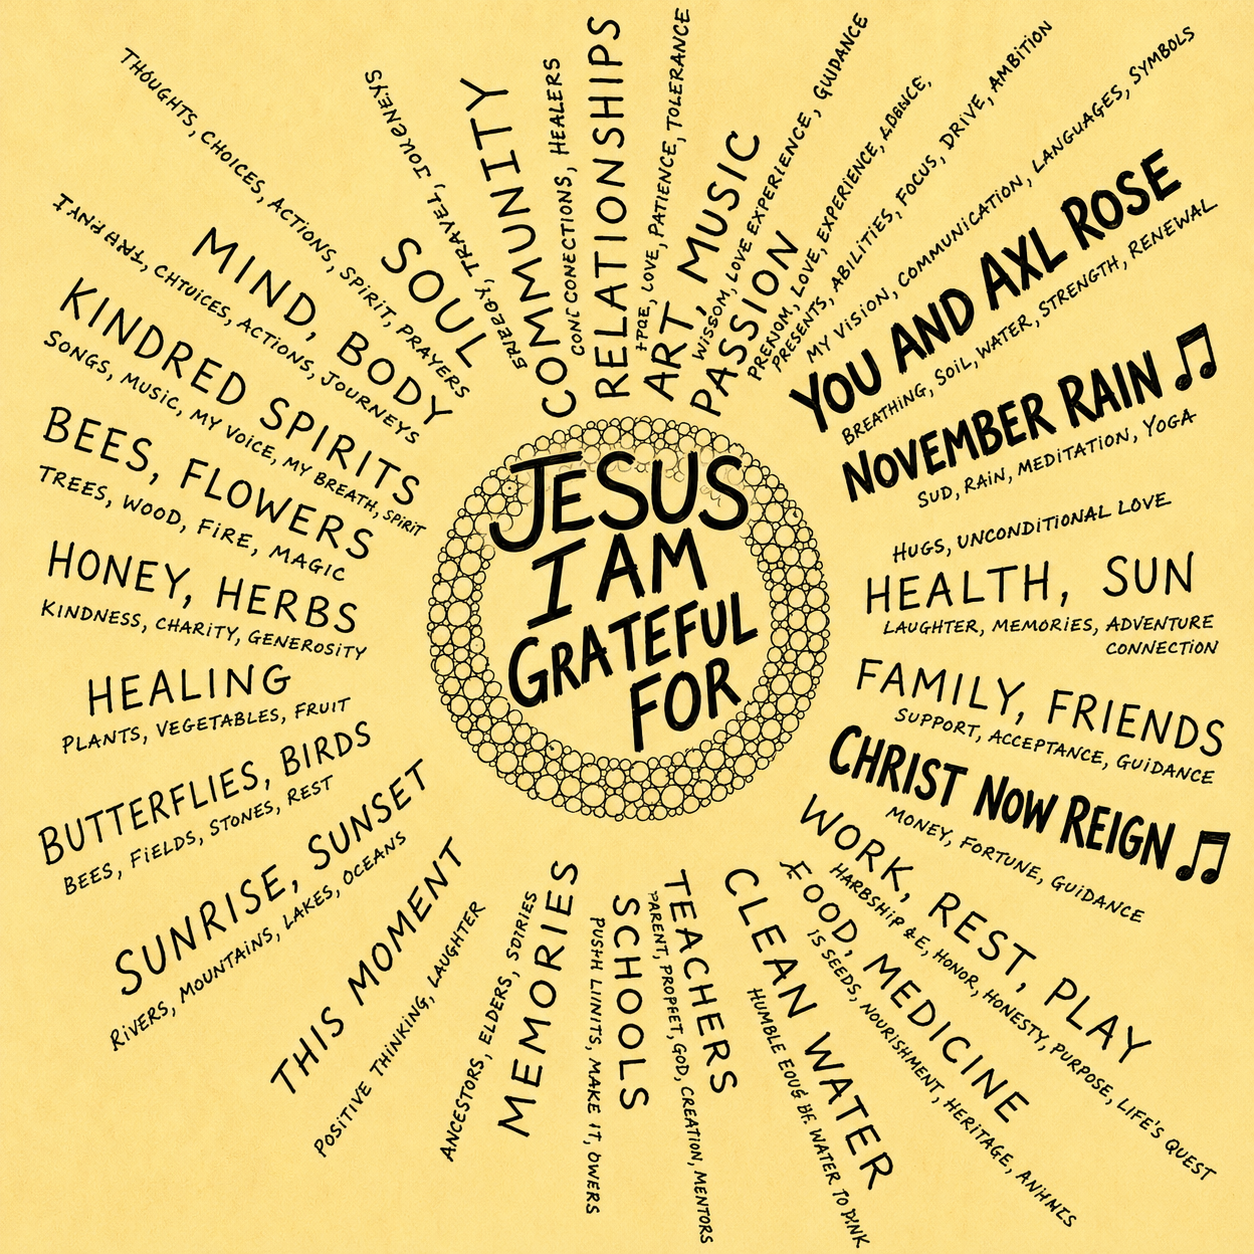 JESUS
I AM
GRATEFUL
FOR
RELATIONSHIPS
LOVE, PATIENCE, TOLERANCE
ART, MUSIC
LOVE EXPERIENCE, GUIDANCE
PASSION
LOVE, EXPERIENCE,
PRESENTS, ABILITIES, FOCUS, DRIVE, AMBITION
MY VISION, COMMUNICATION, LANGUAGES, SYMBOLS
YOU AND AXL ROSE
BREATHING, SOIL, WATER, STRENGTH, RENEWAL
NOVEMBER RAIN
SUD, RAIN, MEDITATION, YOGA
HUGS, UNCONDITIONAL LOVE
HEALTH, SUN
LAUGHTER, MEMORIES, ADVENTURE
CONNECTION
FAMILY, FRIENDS
SUPPORT, ACCEPTANCE, GUIDANCE
CHRIST NOW REIGN
MONEY, FORTUNE, GUIDANCE
WORK, REST, PLAY
HONOR, HONESTY, PURPOSE, LIFE'S QUEST
FOOD, MEDICINE
IS SEEDS, NOURISHMENT, HERITAGE,
CLEAN WATER
HUMBLE WATER TO
TEACHERS
PARENT, PROPHET, GOD, CREATION, MENTORS
SCHOOLS
MAKE IT, OWERS
MEMORIES
ANCESTORS, ELDERS,
POSITIVE THINKING, LAUGHTER
THIS MOMENT
RIVERS, MOUNTAINS, LAKES, OCEANS
SUNRISE, SUNSET
BEES, FIELDS, STONES, REST
BUTTERFLIES, BIRDS
PLANTS, VEGETABLES, FRUIT
HEALING
KINDNESS, CHARITY, GENEROSITY
HONEY, HERBS
TREES, WOOD, FIRE, MAGIC
BEES, FLOWERS
SONGS, MUSIC, MY VOICE, MY BREATH, SPIRIT
KINDRED SPIRITS
ACTIONS, JOURNEYS
MIND, BODY
THOUGHTS, CHOICES, ACTIONS, SPIRIT, PRAYERS
SOUL
TRAVEL,
COMMUNITY
CONNECTIONS, HEALERS